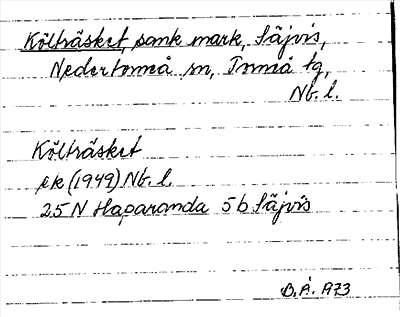 Költräsket, sank mark, Säjvis,
Nedertorneå sn, Torneå tg,
Nb. l.
Költräsket
ek (1949) Nb. l.
25 N Haparanda 5 b Säjvis
B. Å. 1973